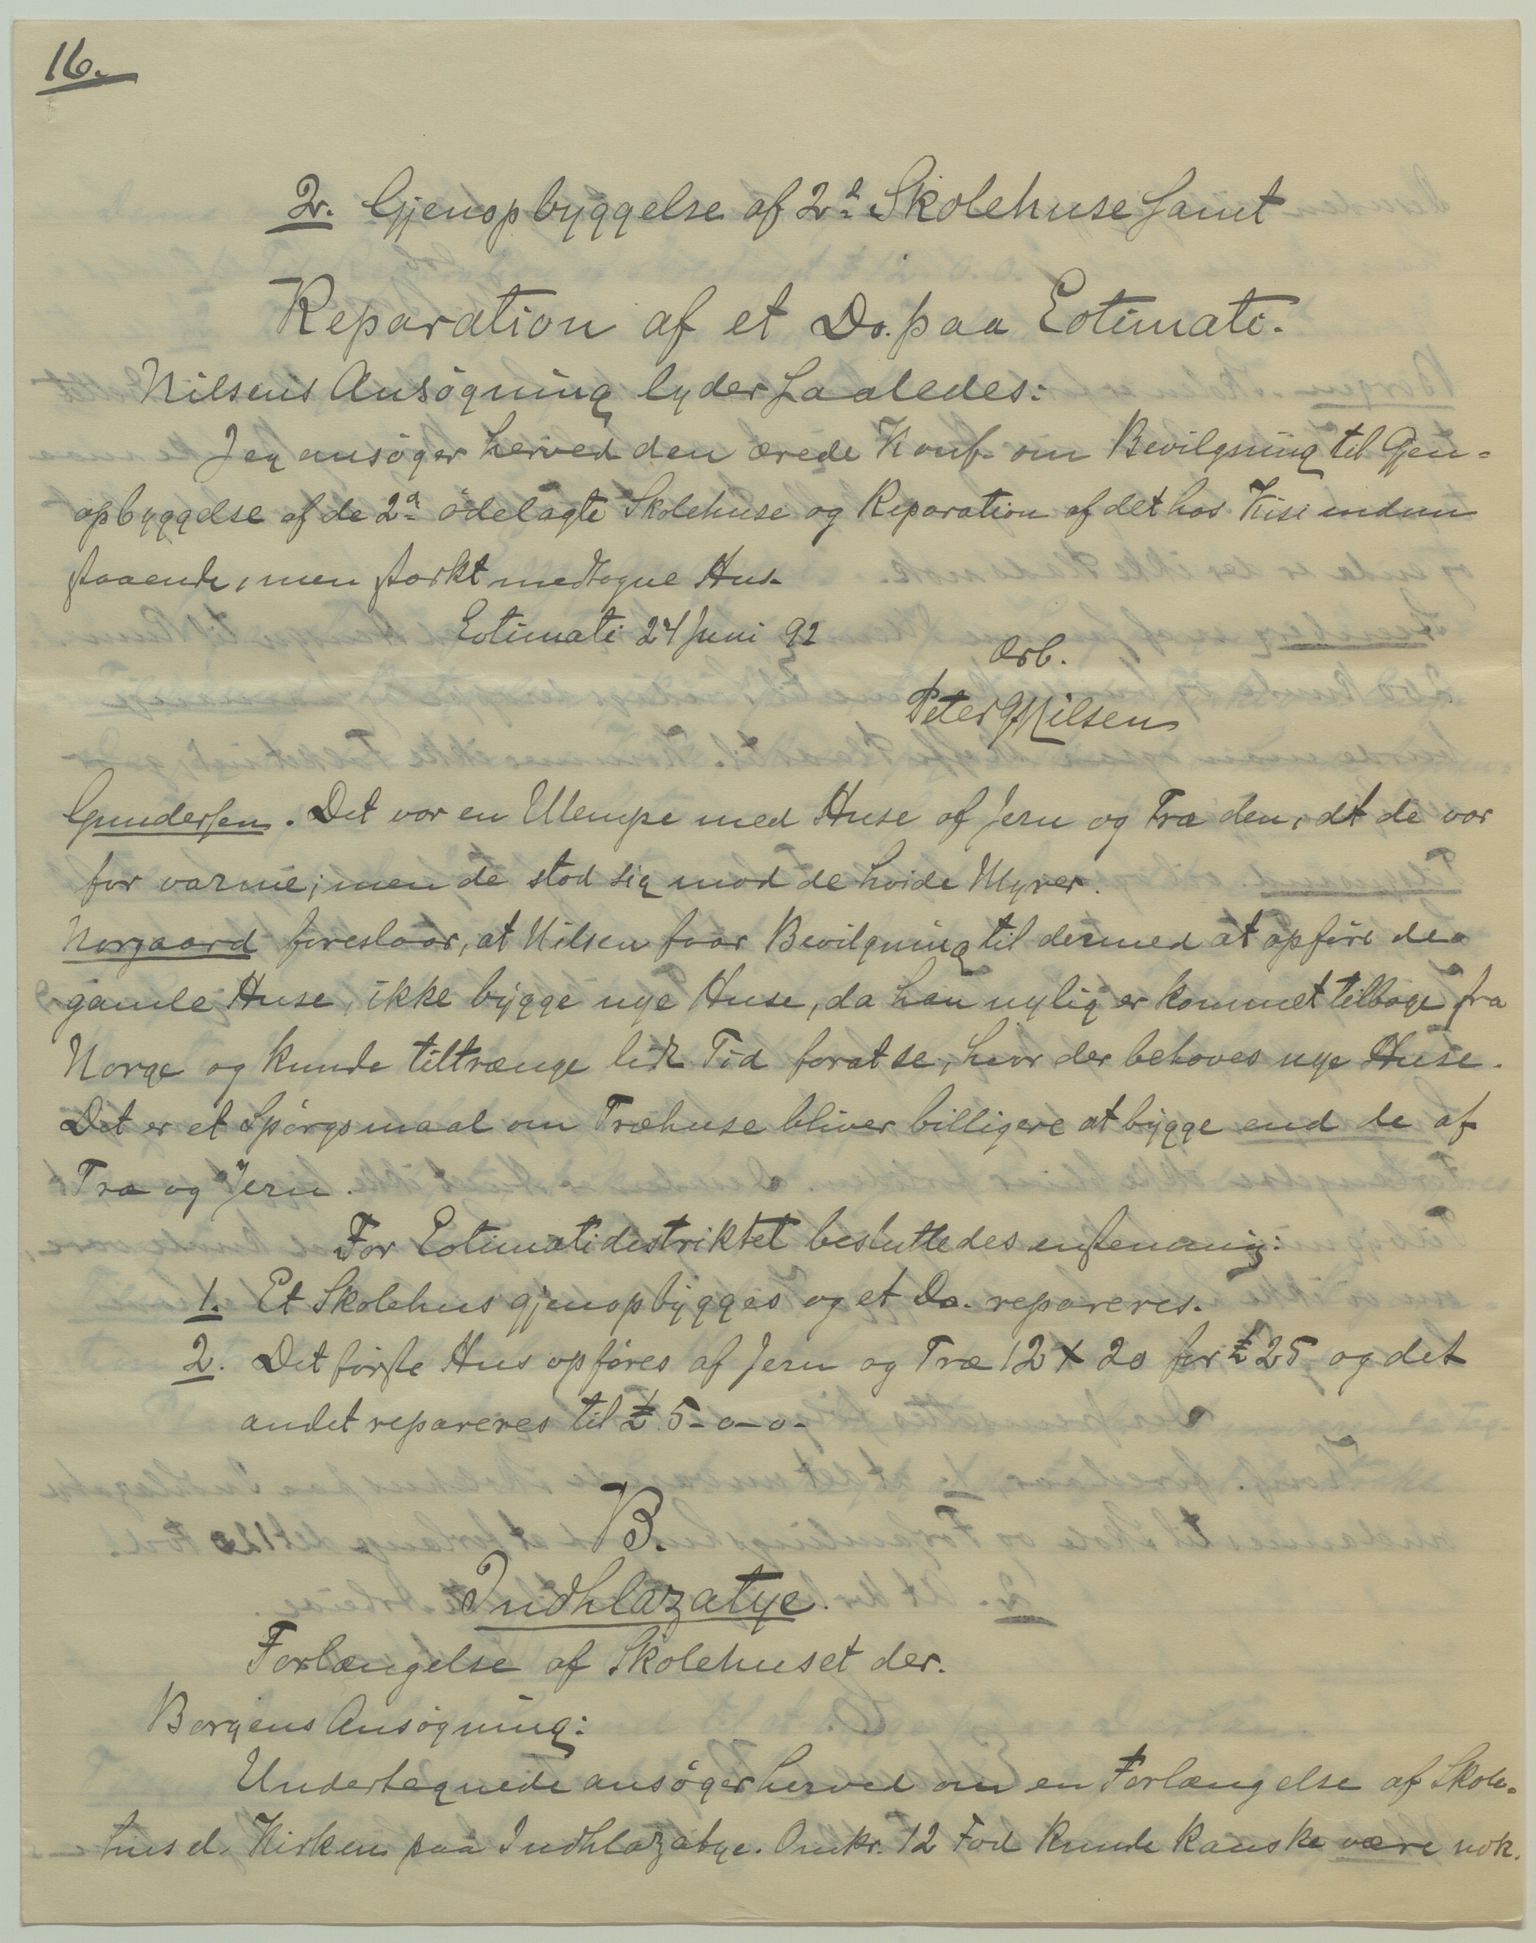 16.
2. Gjenopbyggelse af 2de Skolehuse samt
Reparation af et Do. paa Eotimati.
Nilsens Ansøgning lyder saaledes:
Jeg ansøger herved den ærede Konf. om Bevilgning til Gjen-
opbyggelse af de 2de ødelagte Skolehuse og Reparation af det hos Kisi endnu
staaende, men stærkt medtagne Hus.
Eotimati 24 Juni 92
Ærb.
Peter Nilsen
Gundersen. Det var en Ulempe med Huse af Jern og Træ den, at de var
for varme; men de stod sig mod de hvide Myrer.
Norgaard foreslaar, at Nilsen faar Bevilgning til dermed at opføre de
gamle Huse, ikke bygge nye Huse, da han nylig er kommet tilbage fra
Norge og kunde tiltrænge lidt Tid forat se, hvor der behøves nye Huse.
Det er et Spørgsmaal om Træhuse bliver billigere at bygge end de af
Træ og Jern.
For Eotimatidistriktet besluttedes enstemmig:
1. Et Skolehus gjenopbygges og et Do. repareres.
2. Det første Hus opføres af Jern og Træ 12 X 20 for £ 25 og det
andet repareres til £ 5-0-0-
B.
Indhlazatye.
Forlængelse af Skolehuset der.
Borgens Ansøgning:
Undertegnede ansøger herved om en Forlængelse af Skole-
hus el. Kirken paa Indhlazatye. Omkr. 12 Fod kunde kanske være nok.